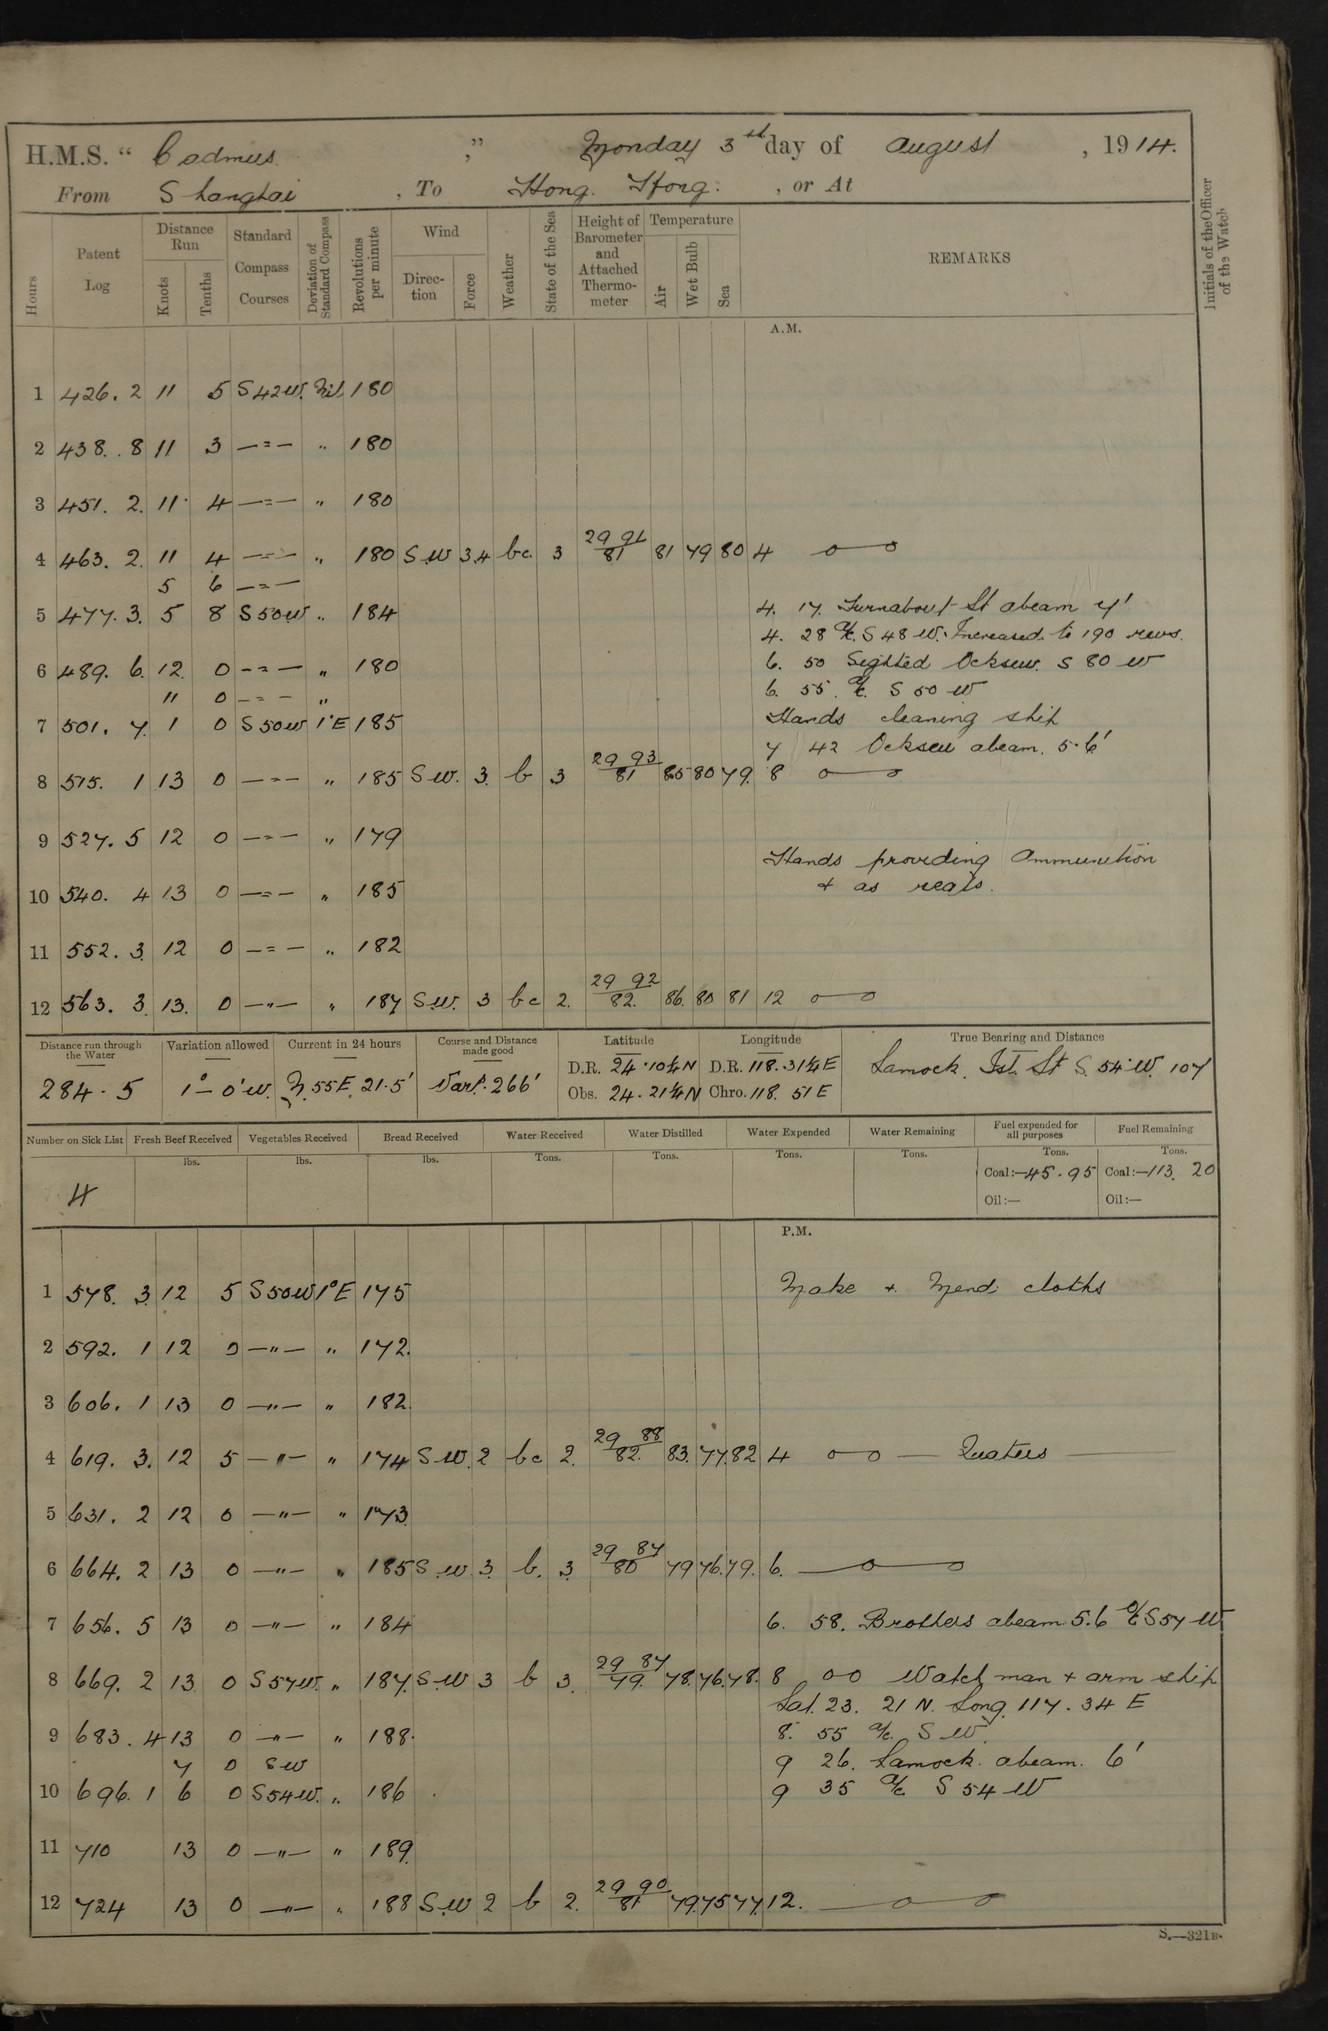 H.M.S. "Cadmus," Monday 3rd day of August, 1914.
From Shanghai, To Hong Kong., or At
Hours
Patent Log
Distance Run
Knots
Tenths
Standard Compass Courses
Deviation of Standard Compass
Revolutions per minute
Wind
Direction
Force
Weather
State of the Sea
Height of Barometer and Attached Thermometer
Temperature
Air
Wet Bulb
Sea
REMARKS
Initials of the Officer of the Watch
A.M.
1 426. 2 11 5 S42W. Nil 180
2 438. 8 11 3 —"— " 180
3 451. 2. 11 4 —"— " 180
4 463. 2. 11 4 —"— " 180 S.W 3.4 bc. 3 29 91 / 81 81 79 80 4 o—o
5 6 —"—
5 477. 3. 5 8 S50W " 184 4. 17. Turnabout St abeam 7'
4. 28 a/c. S 48 W. Increased to 190 revs.
6 489. 6. 12. 0 —"— " 180 6. 50 Sighted Ockseu. S 80 W
11 0 —"— " 6. 55. a/c. S 50 W
7 501. 7. 1 0 S50W 1°E 185 Hands cleaning ship
7 42 Ockseu abeam. 5.6'
8 515. 1 13 0 —"— " 185 SW. 3. b 3 29 93 / 81 85 80 79. 8 o—o
9 527. 5 12 0 —"— " 179
Hands providing Ammunition
10 540. 4 13 0 —"— " 185 + as reqs.
11 552. 3. 12 0 —"— " 182
12 563. 3. 13. 0 —"— " 187 S.W. 3 bc 2. 29 92 / 82. 86. 80 81 12 o—o
Distance run through the Water
Variation allowed
Current in 24 hours
Course and Distance made good
Latitude
Longitude
True Bearing and Distance
284.5 1°–0'W. N.55E. 21.5' Var's. 266' D.R. 24.10¼N D.R. 118.31¼E Lamock. Isl. St S. 54°W. 107
Obs. 24.21¼N Chro. 118. 51 E
Number on Sick List
Fresh Beef Received
Vegetables Received
Bread Received
Water Received
Water Distilled
Water Expended
Water Remaining
Fuel expended for all purposes
Fuel Remaining
lbs. lbs. lbs. Tons. Tons. Tons. Tons. Tons. Tons.
4 Coal:—45.95 Coal:—113. 20
Oil:— Oil:—
P.M.
1 578. 3. 12 5 S50W 1°E 175 Make + Mend cloths
2 592. 1 12 0 —"— " 172.
3 606. 1 13 0 —"— " 182.
4 619. 3. 12 5 —"— " 174 S.W. 2 bc 2. 29 88 / 82. 83. 77. 82 4 o o — Quaters
5 631. 2 12 0 —"— " 173
6 664. 2 13 0 —"— " 185 S.W 3. b. 3. 29 87 / 80 79 76. 79. 6. —o—o
7 656. 5 13 0 —"— " 184 6. 58. Brothers abeam 5.6 a/c S57 W
8 669. 2 13 0 S57W. " 187. S.W 3 b 3. 29 87 / 79. 78. 76. 78. 8 oo Watch man + arm ship
Lat. 23. 21 N. Long. 117. 34 E
9 683. 4 13 0 —"— " 188. 8. 55 a/c. S W.
7 0 SW 9 26. Lamock. abeam. 6'
10 696. 1 6 0 S54W. " 186 9 35 a/c. S 54 W
11 710 13 0 —"— " 189.
12 724 13 0 —"— " 188 S.W 2 b 2. 29 90 / 81 79. 75 77. 12. —o—o
S.—321B.